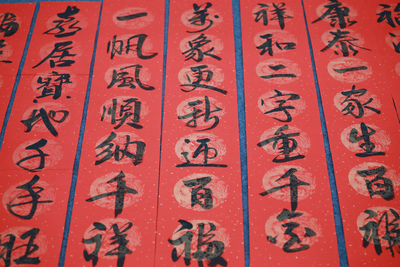 康泰一家生百福
祥和二字重千金
萬象更新迎百福
一帆風順納千祥
喜居寶地千年旺